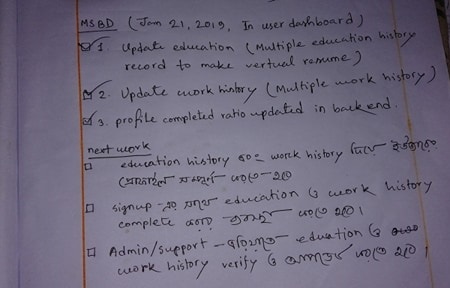 MSBD (Jan 21, 2019, In user dashboard)
1. Update education (Multiple education history
record to make vertual resume)
2. Update work history (Multiple work history)
3. profile completed ratio updated in back end.
next work
education history এবং work history দিয়ে
প্রোফাইল সম্পূর্ণ করতে হবে
signup এর সময় education ও work history
complete করতে হবে।
Admin/support education ও
work history verify ও করতে হবে।